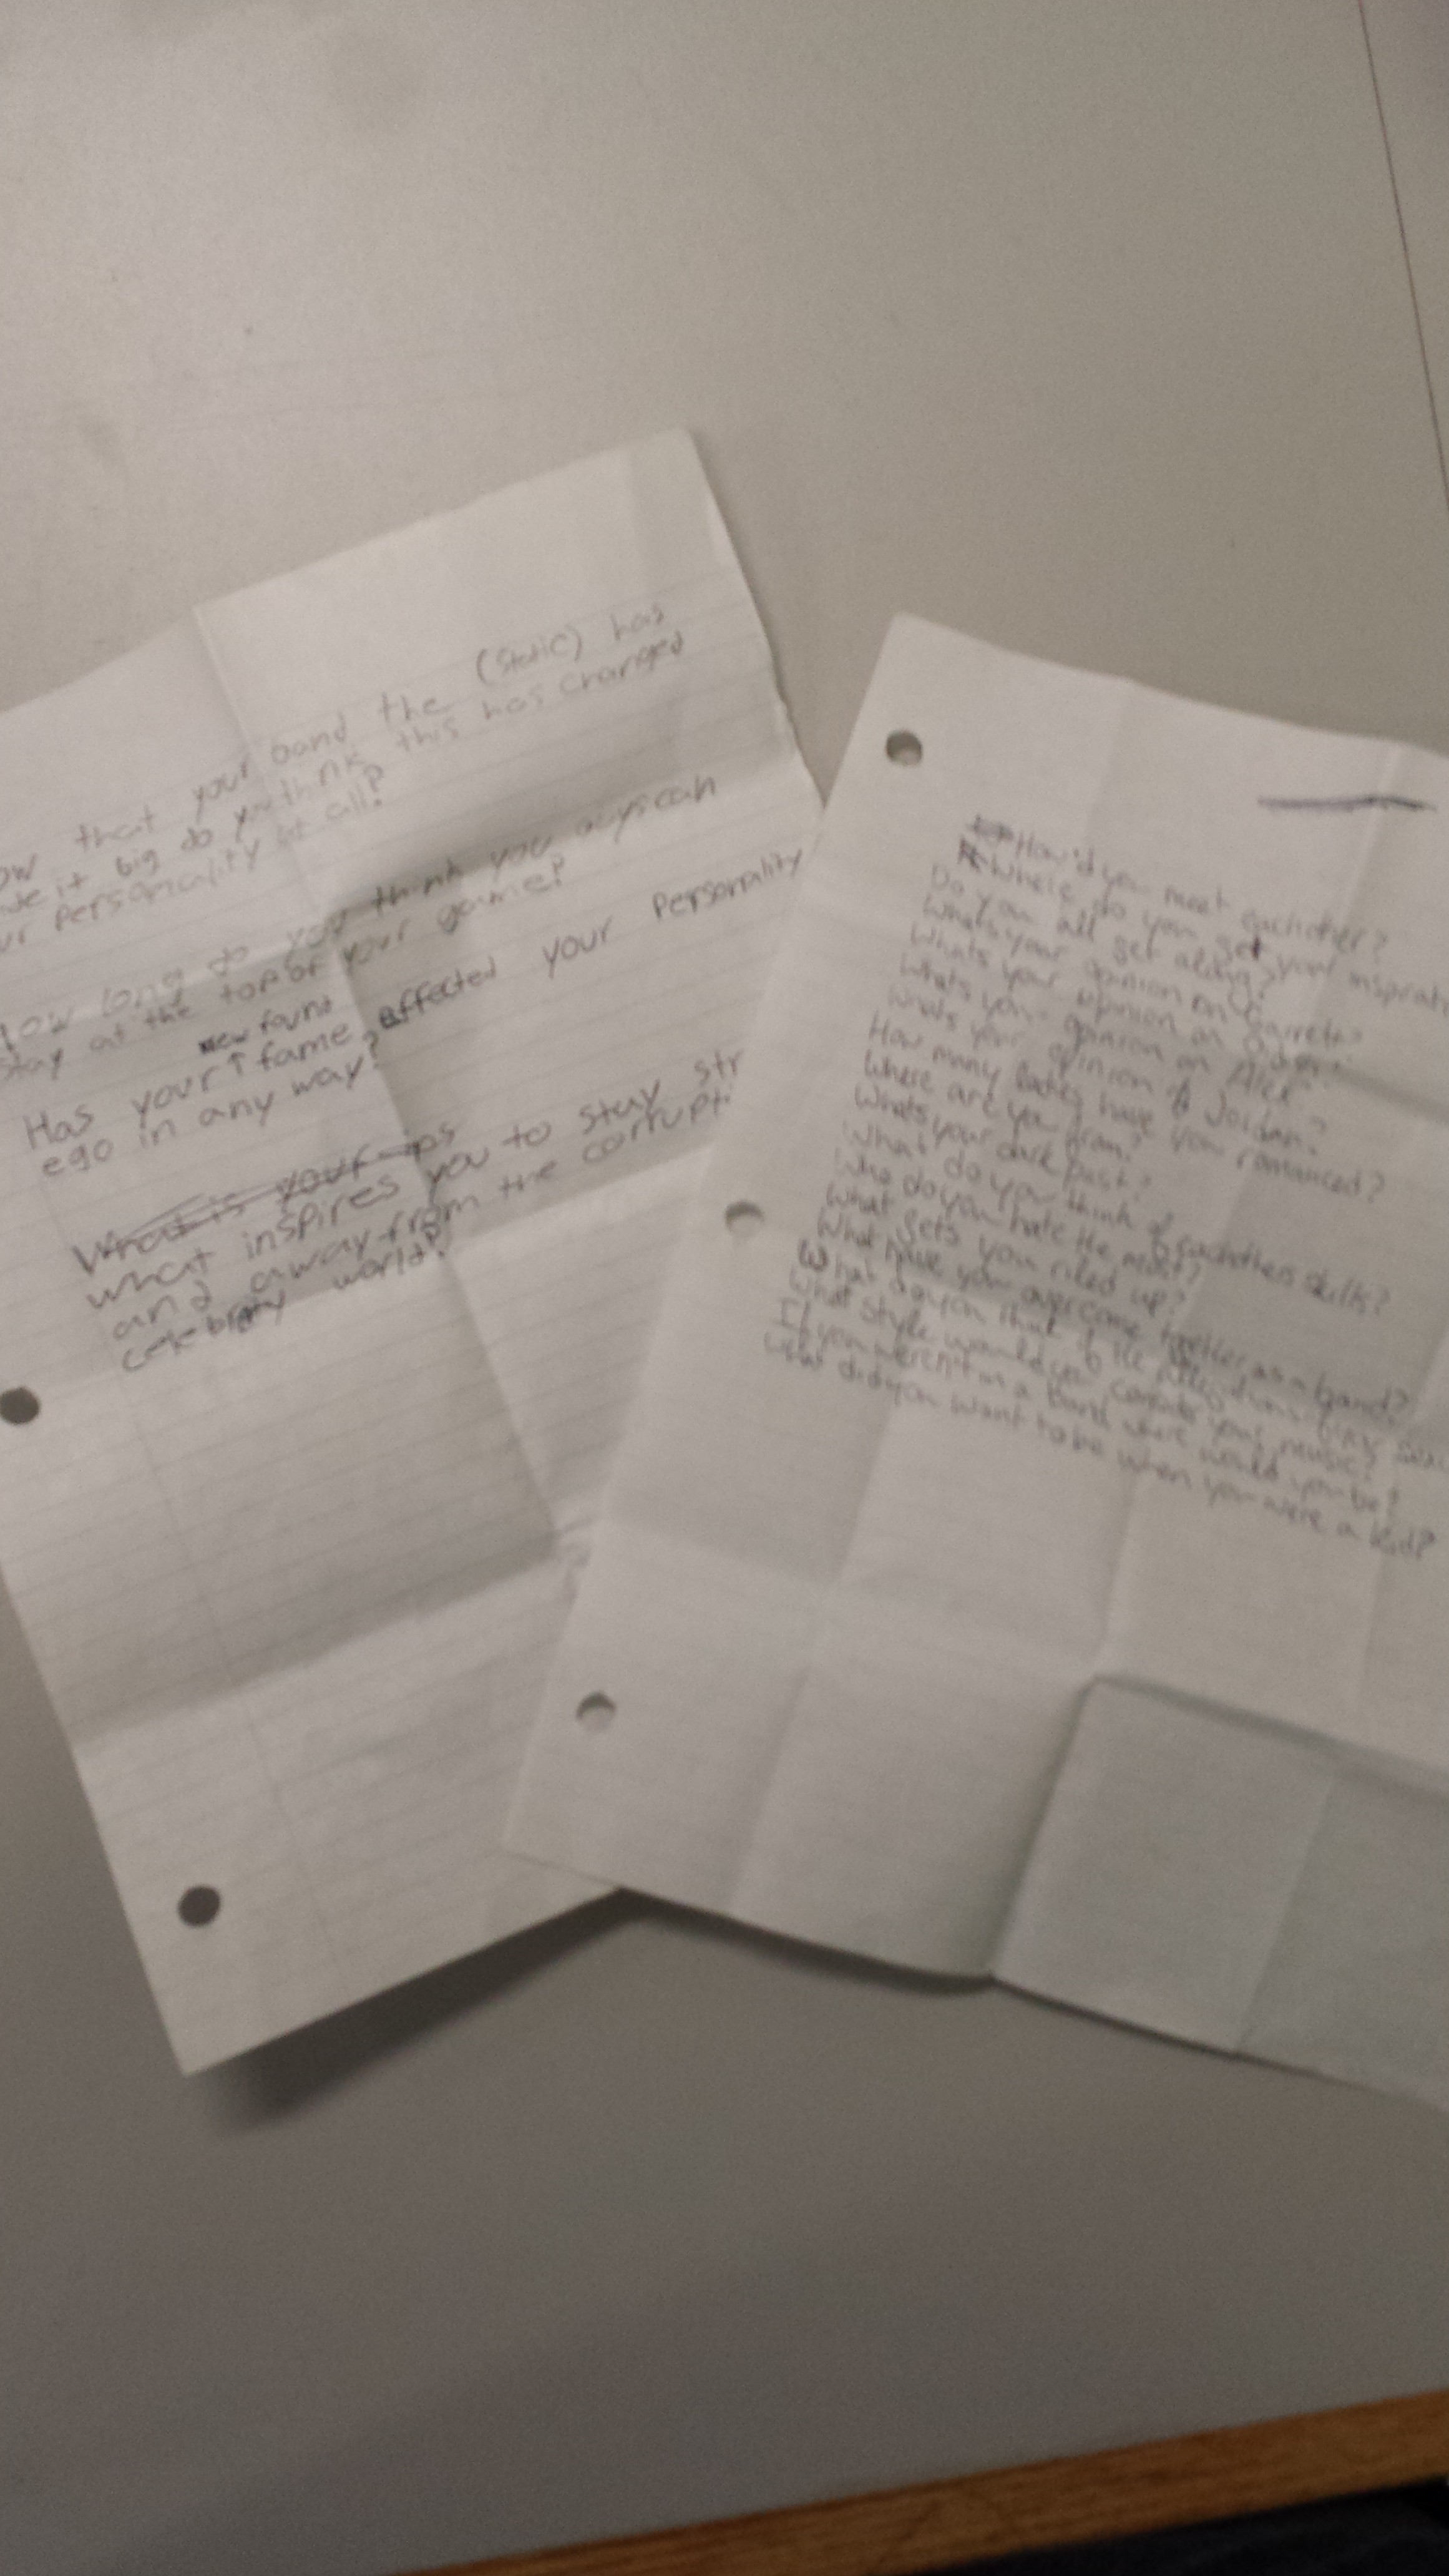 ow that your band the (static) has
de it big do you think this has changed
ur personality at all?
How long do you think you guys can
stay at the top of your game?
new found
Has your fame affected your personality
ego in any way?
What is your ins
what inspires you to stay str
and away from the corrupti
celebrity world?
How'd you meet eachother?
Where do you get your inspirati
Do you all get along?
Whats your opinion on Garrett?
Whats your opinion on
Whats your opinion on Alex?
Whats your opinion of Jordan?
How many ladies have you romanced?
Where are you from?
Whats your dark past?
What do you think of eachothers skills?
Who do you hate the most?
What gets you riled up?
What have you overcome together as a band?
What do you think of the allegations
What style would you consider your music?
If you weren't in a band where would you be?
What did you want to be when you were a kid?